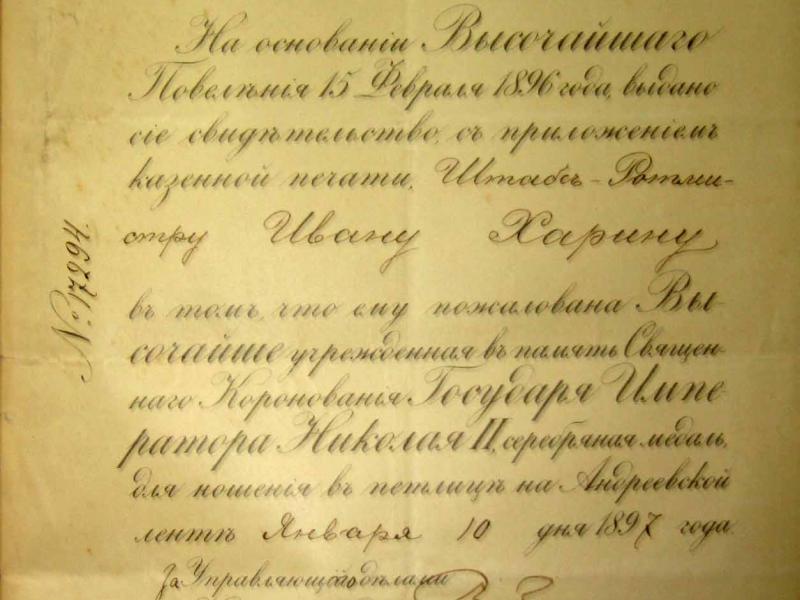 На основаніи Высочайшаго
Повелѣнія 15 Февраля 1896 года, выдано
сіе свидѣтельство, съ приложеніемъ
казенной печати, Штабсъ-Ротми-
стру Ивану Харину
въ томъ, что ему пожалована Вы-
сочайше учрежденная въ память Священ-
наго Коронованія Государя Импе-
ратора Николая II, серебряная медаль,
для ношенія въ петлицѣ на Андреевской
лентѣ Января 10 дня 1897 года.
За Управляющаго дѣлами
№ 17294.